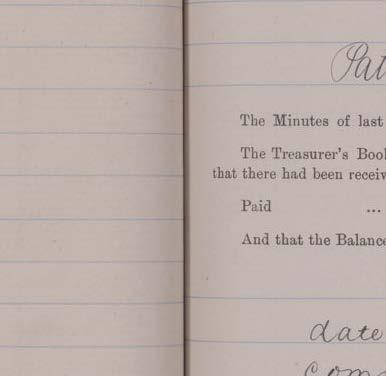 Pat
The Minutes of last
The Treasurer's Book
that there had been receiv
Paid ...
And that the Balance
date
com